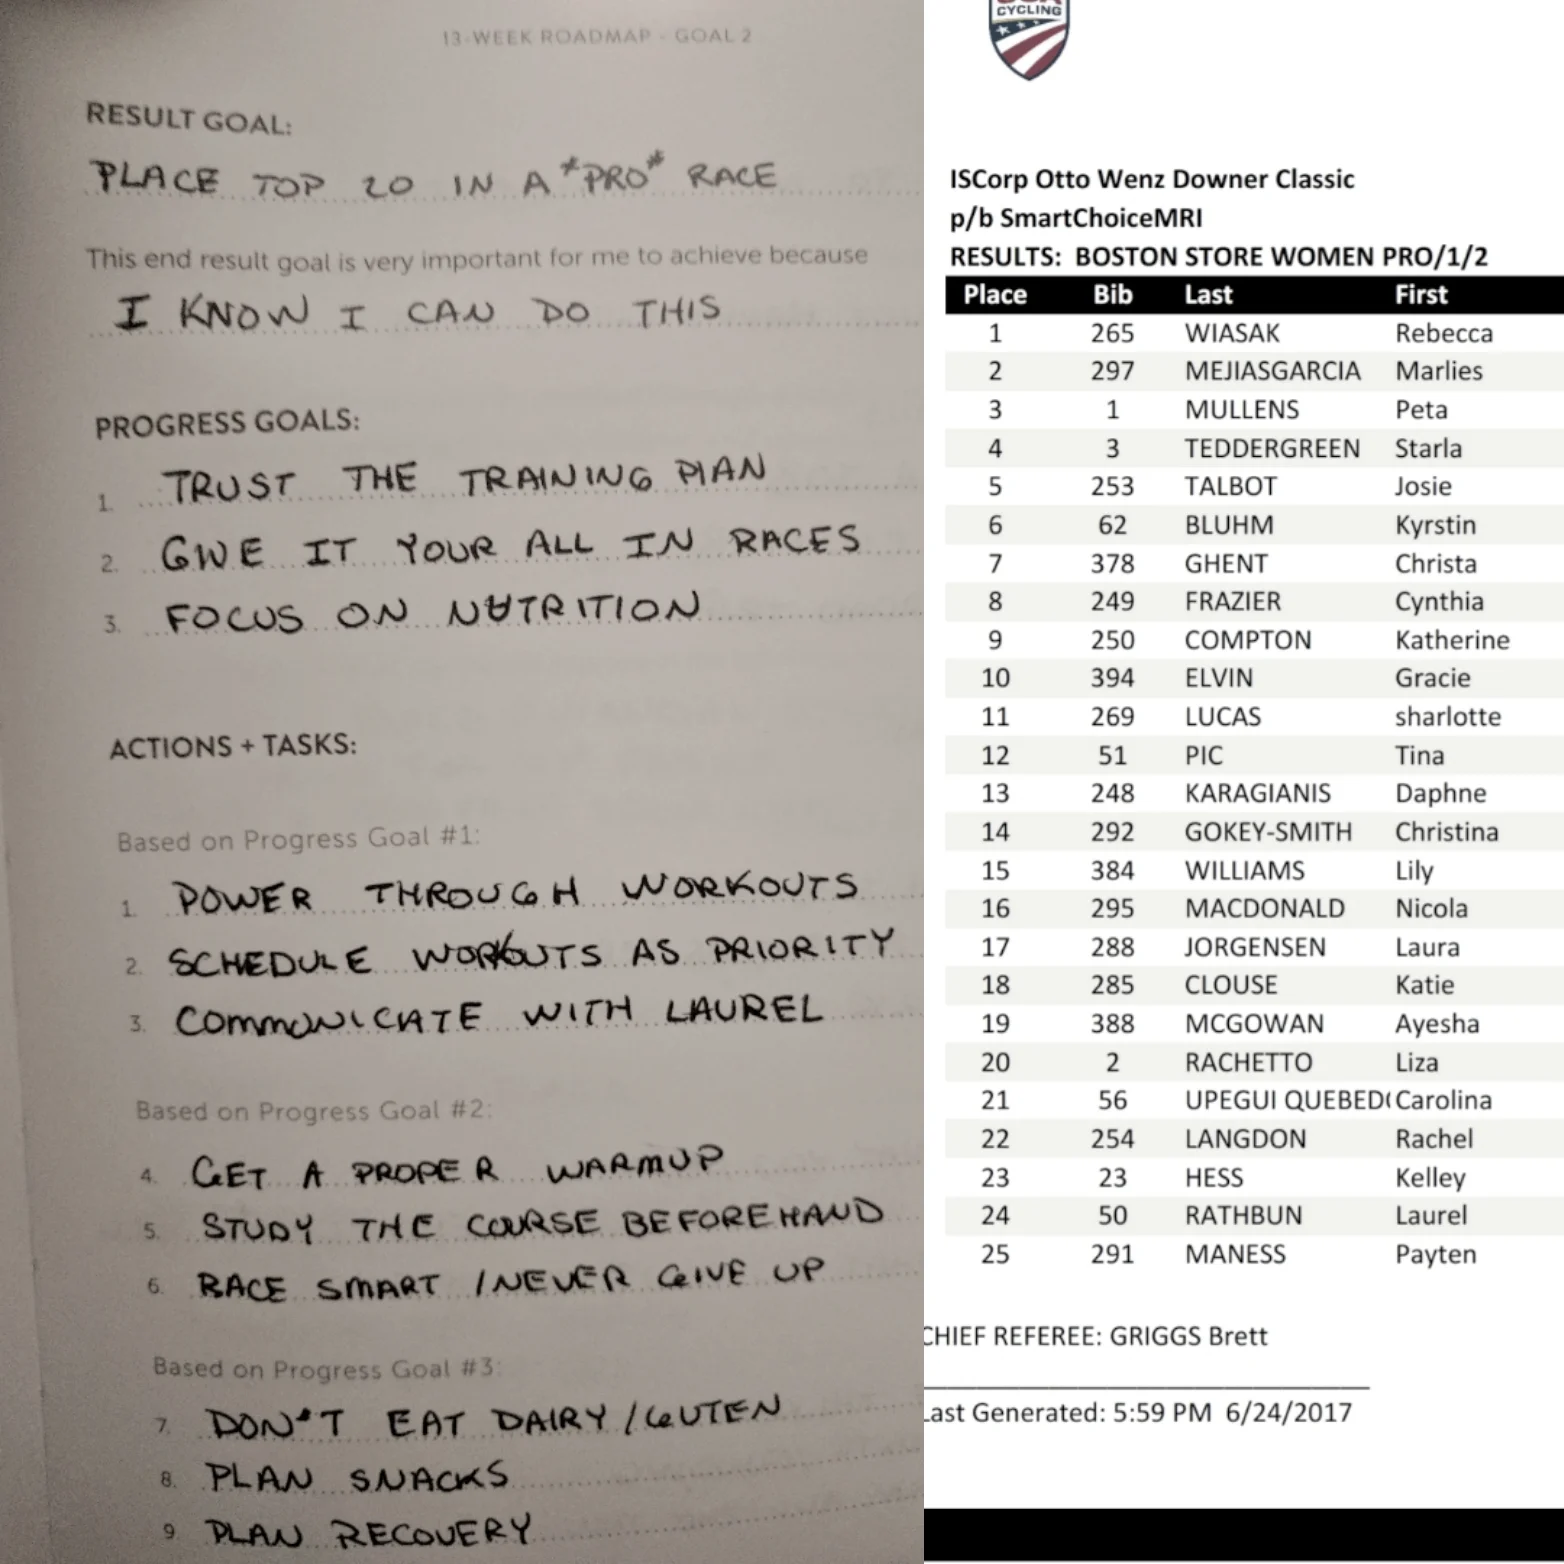 13-WEEK ROADMAP - GOAL 2
RESULT GOAL:
PLACE TOP 20 IN A *PRO* RACE
This end result goal is very important for me to achieve because
I KNOW I CAN DO THIS
PROGRESS GOALS:
1. TRUST THE TRAINING PLAN
2. GIVE IT YOUR ALL IN RACES
3. FOCUS ON NUTRITION
ACTIONS + TASKS:
Based on Progress Goal #1:
1. POWER THROUGH WORKOUTS
2. SCHEDULE WORKOUTS AS PRIORITY
3. COMMUNICATE WITH LAUREL
Based on Progress Goal #2:
4. GET A PROPER WARMUP
5. STUDY THE COURSE BEFOREHAND
6. RACE SMART / NEVER GIVE UP
Based on Progress Goal #3:
7. DON'T EAT DAIRY / GLUTEN
8. PLAN SNACKS
9 PLAN RECOVERY
CYCLING
ISCorp Otto Wenz Downer Classic
p/b SmartChoiceMRI
RESULTS: BOSTON STORE WOMEN PRO/1/2
Place Bib Last First
1 265 WIASAK Rebecca
2 297 MEJIASGARCIA Marlies
3 1 MULLENS Peta
4 3 TEDDERGREEN Starla
5 253 TALBOT Josie
6 62 BLUHM Kyrstin
7 378 GHENT Christa
8 249 FRAZIER Cynthia
9 250 COMPTON Katherine
10 394 ELVIN Gracie
11 269 LUCAS sharlotte
12 51 PIC Tina
13 248 KARAGIANIS Daphne
14 292 GOKEY-SMITH Christina
15 384 WILLIAMS Lily
16 295 MACDONALD Nicola
17 288 JORGENSEN Laura
18 285 CLOUSE Katie
19 388 MCGOWAN Ayesha
20 2 RACHETTO Liza
21 56 UPEGUI QUEBED Carolina
22 254 LANGDON Rachel
23 23 HESS Kelley
24 50 RATHBUN Laurel
25 291 MANESS Payten
CHIEF REFEREE: GRIGGS Brett
Last Generated: 5:59 PM 6/24/2017